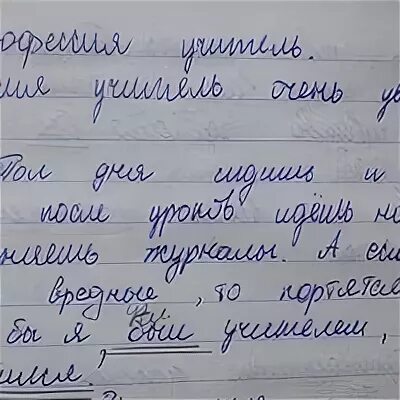 офессия учитель.
сия учитель очень ув
Пол дня сидишь и
после уроков идёшь но
няешь журналы. А есл
вредные, то портятся
бы я был учителем,
ился.